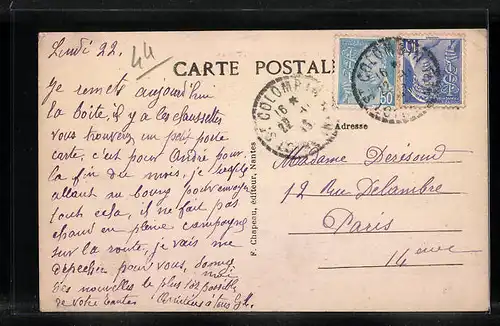 Lundi 22.
44
CARTE POSTALE
Je remets aujourd'hui
la boîte, il y a les chaussettes
vous trouverez un petit porte
carte, c'est pour André pour
la fin du mois, je profite
allant au bourg pour envoyer
tout cela, il ne fait pas
chaud en pleine campagne
sur la route, je vais me
dépêcher pour vous, donnez moi
des nouvelles le plus tôt possible
de votre tantes
F. Chapeau, éditeur, Nantes
ST COLOMBAN
16 *
22 - 11
Adresse
Madame Derisoud
12 Rue Delambre
Paris
14ème